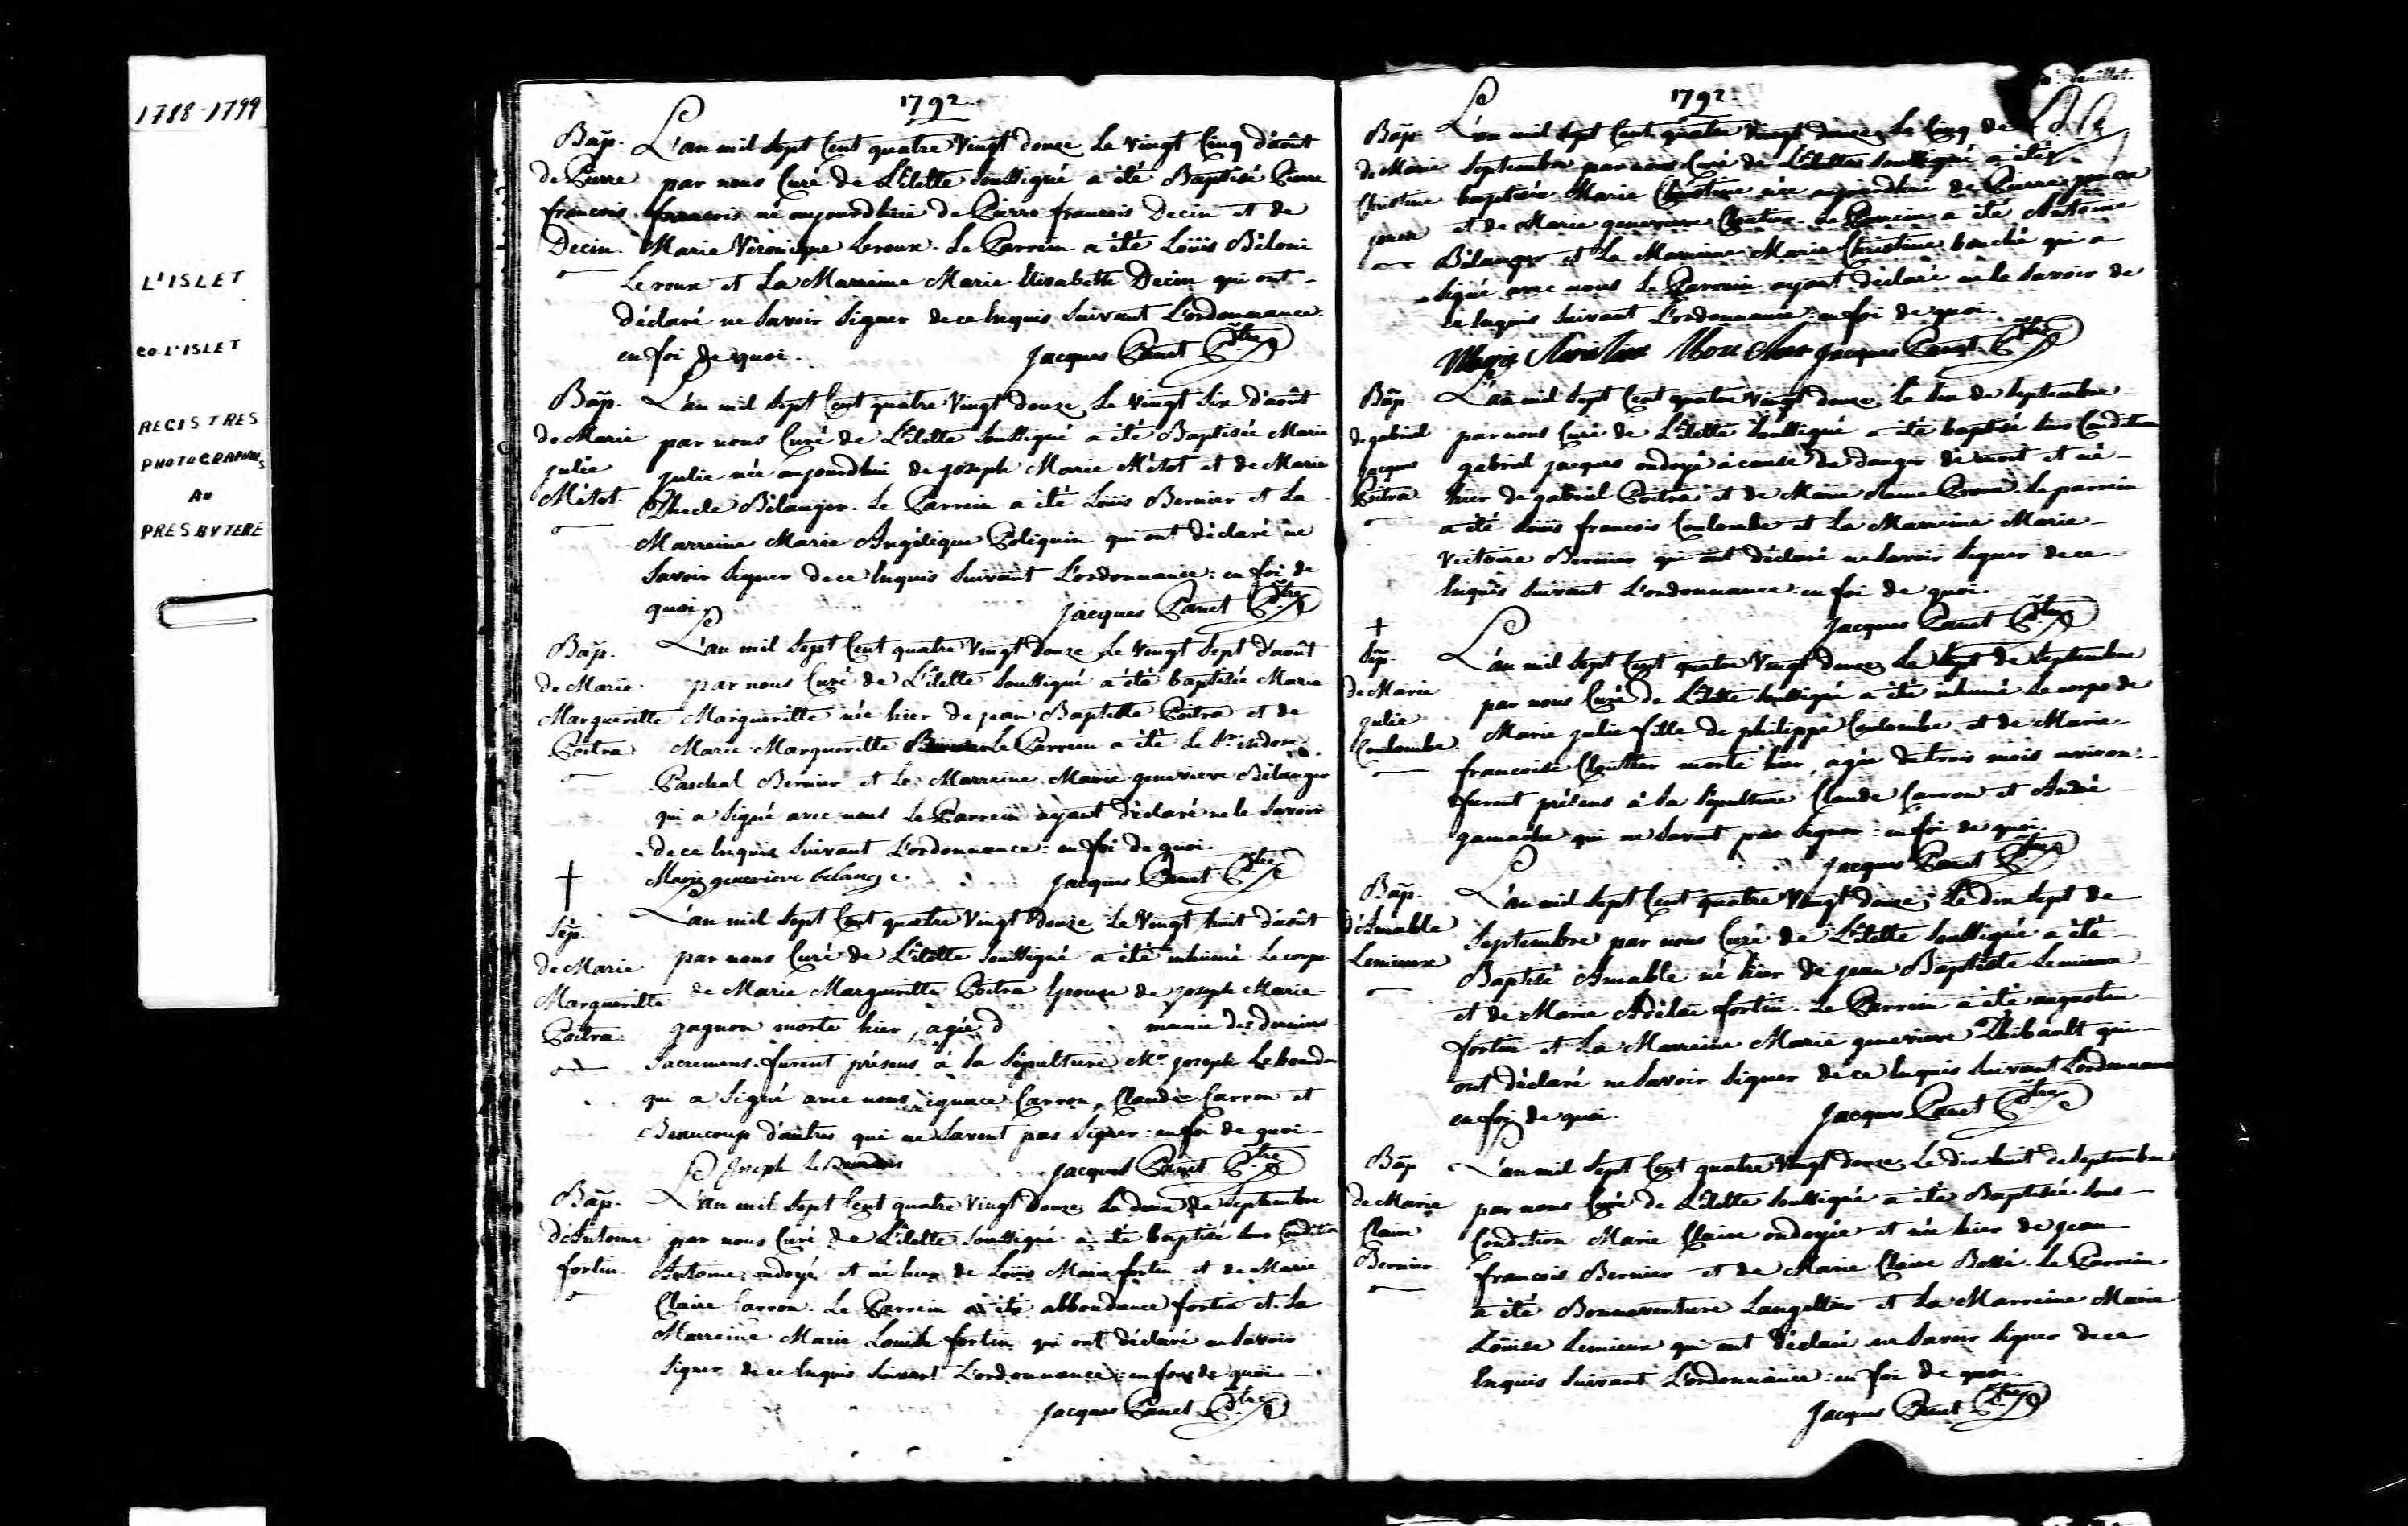 1788-1799
L'ISLET
CO. L'ISLET
REGISTRES
PHOTOGRAPHIÉS
AU
PRESBYTERE
1792.
Bap. L'an mil Sept Cent quatre Vingt douze Le Vingt Cinq d'août
de Pierre par nous Curé de L'ilette Soussigné a été Baptisé Pierre
francois francois né aujourdhui de Pierre francois Decin et de
Decin. Marie Véronique Leroux. Le Parrein a été Loüis Béloni
Leroux et La Marreine Marie Elisabeth Decin qui ont
déclaré ne Savoir Signer de ce Enquis Suivant L'ordonnance.
en foi de quoi. Jacques Panet Ptre
Bap. L'an mil Sept Cent quatre Vingt douze Le Vingt Six d'août
de Marie par nous Curé de L'ilette Soussigné a été Baptisée Marie
julie julie née aujourdhui de joseph Marie Métot et de Marie
Métot. Thecle Bélanger. Le Parrein a été Loüis Bernier et La
Marreine Marie Angélique Poliquin qui ont déclaré ne
Savoir Signer de ce Enquis Suivant L'ordonnance: en foi de
quoi. Jacques Panet Ptre
Bap. L'an mil Sept Cent quatre Vingt douze Le Vingt Sept d'août
de Marie par nous Curé de L'ilette Soussigné a été baptisée Marie
Margueritte Margueritte née hier de jean Baptiste Poitra et de
Poitra Marie Margueritte Le Parrein a été Le Sr. isidore
Paschal Bernier et La Marreine Marie genevieve Bélanger
qui a Signé avec nous Le Parrein ayant déclaré ne le Savoir
de ce Enquis Suivant L'ordonnance: en foi de quoi.
Marie genevieve belange Jacques Panet Ptre
Sep. L'an mil Sept Cent quatre Vingt douze Le Vingt huit d'août
de Marie par nous Curé de L'ilette Soussigné a été inhumé Le corps
Margueritte de Marie Margueritte Poitra Epouse de joseph Marie
Poitra. gagnon morte hier, agée d munie des derniers
Sacremens. furent présens à Sa Sépulture Mr. joseph Lebourdai
qui a Signé avec nous, ignace Carron, Claude Carron et
Beaucoup d'autres qui ne Savent pas Signer: en foi de quoi
Joseph Le Bourdais Jacques Panet Ptre
Bap. L'an mil Sept Cent quatre Vingt douze Le deux de Septembre
d'Antoine par nous Curé de L'ilette Soussigné a été baptisé Sous Condition
fortin. Antoine ondoyé et né hier de Loüis Marie fortin et de Marie
Claire Carron. Le Parrein a été abbondance fortin et La
Marreine Marie Louise fortin qui ont déclaré ne Savoir
Signer de ce Enquis Suivant L'ordonnance: en foi de quoi
Jacques Panet Ptre
feuillet.
1792.
Bap. L'an mil Sept Cent quatre Vingt douze Le Cinq de
de Marie Septembre par nous Curé de L'ilette Soussigné a été
Christine baptisée Marie Christine née aujourdhui de Pierre
et de Marie genevieve Cloutier. Le Parrein a été Antoine
Bélanger et La Marreine Marie Christine bouché qui a
Signé avec nous Le Parrein ayant déclaré ne le Savoir de
ce Enquis Suivant L'ordonnance: en foi de quoi.
Marie Jacques Panet Ptre
Bap. L'an mil Sept Cent quatre Vingt douze Le Six de Septembre
de gabriel par nous Curé de L'ilette Soussigné a été baptisé Sous Condition
jacques gabriel jacques ondoyé à cause du danger de mort et né
Poitra. hier de gabriel Poitra et de Marie Le parrein
a été Loüis francois Coulombe et La Marreine Marie
Victoire Bernier qui ont déclaré ne Savoir Signer de ce
Enquis Suivant L'ordonnance: en foi de quoi.
Jacques Panet Ptre
Sep. L'an mil Sept Cent quatre Vingt douze Le Sept de Septembre
de Marie par nous Curé de L'ilette Soussigné a été inhumé Le corps de
julie Marie julie fille de philippe Coulombe et de Marie
Coulombe francoise Cloutier morte hier, agée de trois mois environ:
furent présens à Sa Sépulture Claude Carron et André
gamache qui ne Savent pas Signer: en foi de quoi.
Jacques Panet Ptre
Bap. L'an mil Sept Cent quatre Vingt douze Le dix Sept de
d'Amable Septembre par nous Curé de L'ilette Soussigné a été
Lemieux Baptisé Amable né hier de jean Baptiste Lemieux
et de Marie Adélaï fortin. Le Parrein a été augustin
fortin et La Marreine Marie genevieve Thibault qui
ont déclaré ne Savoir Signer de ce Enquis Suivant L'ordonnance
en foi de quoi. Jacques Panet Ptre
Bap L'an mil Sept Cent quatre Vingt douze Le dix huit de Septembre
de Marie par nous Curé de L'ilette Soussigné a été Baptisée Sous
Claire Condition Marie Claire ondoyée et née hier de jean
Bernier. francois Bernier et de Marie Claire Bossé. Le Parrein
a été Bonnaventure Langellier et La Marreine Marie
Loüise Lemieux qui ont déclaré ne Savoir Signer de ce
Enquis Suivant L'ordonnance: en foi de quoi.
Jacques Panet Ptre